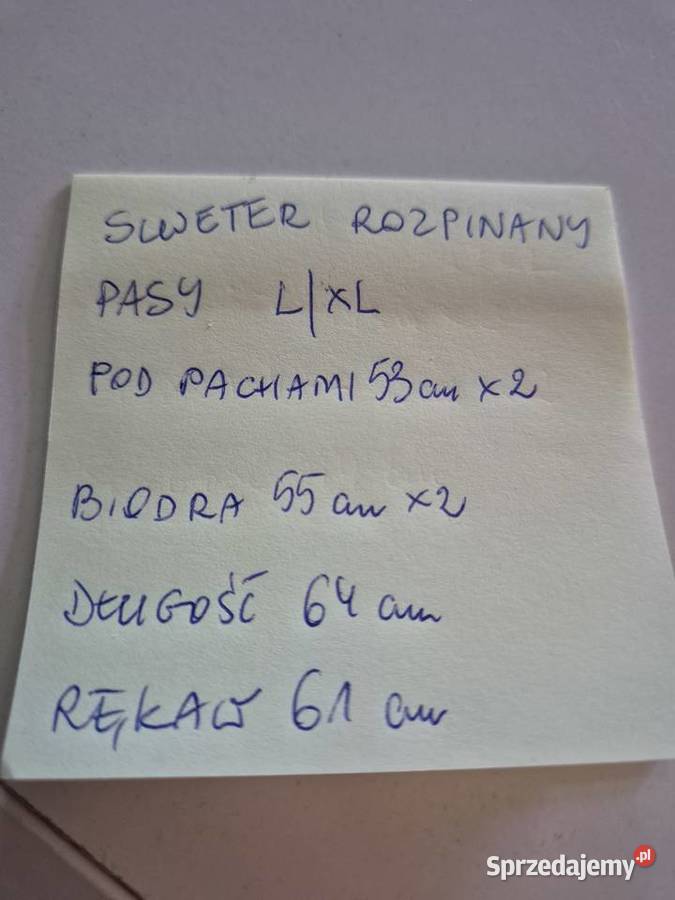 SWETER ROZPINANY
PASY L/XL
POD PACHAMI 53 cm x 2
BIODRA 55 cm x 2
DŁUGOŚĆ 64 cm
RĘKAW 61 cm
Sprzedajemy.pl